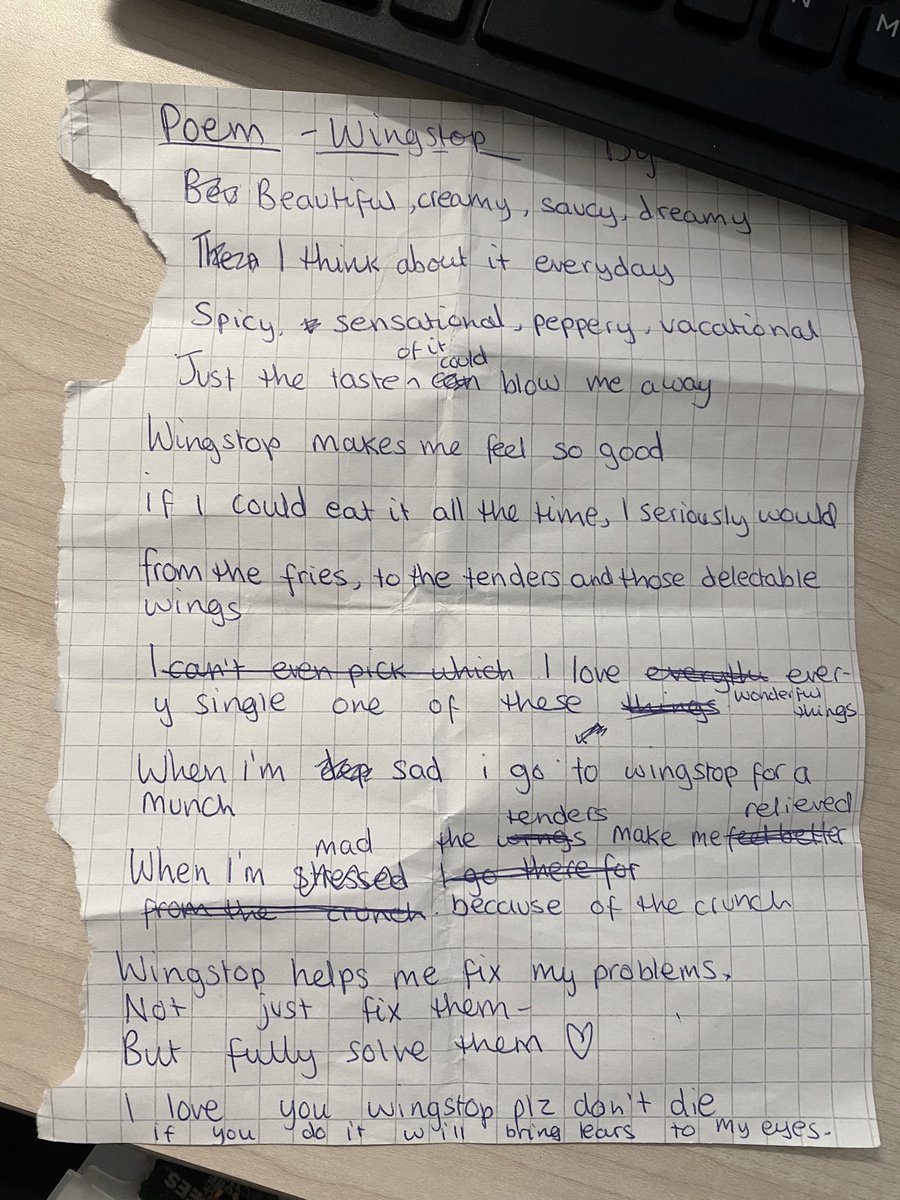 Poem - Wingstop By
Beo Beautiful, creamy, saucy, dreamy
I think about it everyday
Spicy, sensational, peppery, vacational
of it could
Just the taste can blow me away
Wingstop makes me feel so good
if I could eat it all the time, I seriously would
from the fries, to the tenders and those delectable
wings
I can't even pick which I love everythi ever-
y single one of these things wonderful things
When i'm dep sad i go to wingstop for a
munch
mad tenders relieved
When I'm stressed I go there for the wings make me feel better
from the crunch because of the crunch
Wingstop helps me fix my problems,
Not just fix them-
But fully solve them ♡
I love you wingstop plz don't die
if you do it will bring tears to my eyes.
N
M